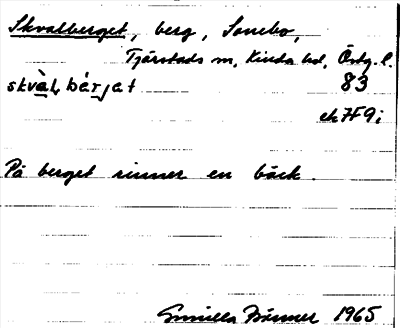 Skvalberget, berg, Sonebo,
Tjärstads sn, Kinda hd, Östg. l.
skvàl,bärjet 83
ek 7F9i
På berget rinner en bäck.
Gunilla Bäsmer 1965